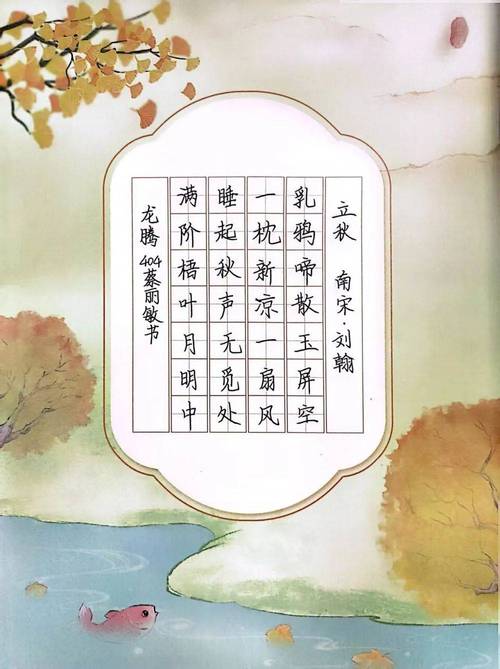 立秋 南宋·刘翰
乳鸦啼散玉屏空
一枕新凉一扇风
睡起秋声无觅处
满阶梧叶月明中
龙腾404蔡丽敏书